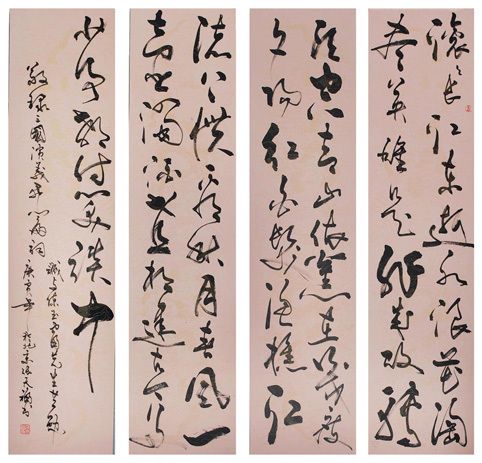 滚々長江東逝水浪花淘
盡英雄是非成敗轉
頭空青山依舊在幾度
夕陽紅白髮漁樵江
渚上慣看秋月春風一
壺濁酒喜相逢古今多
少事都付笑談中
敬録三國演義開篇詞
庚寅年於北京